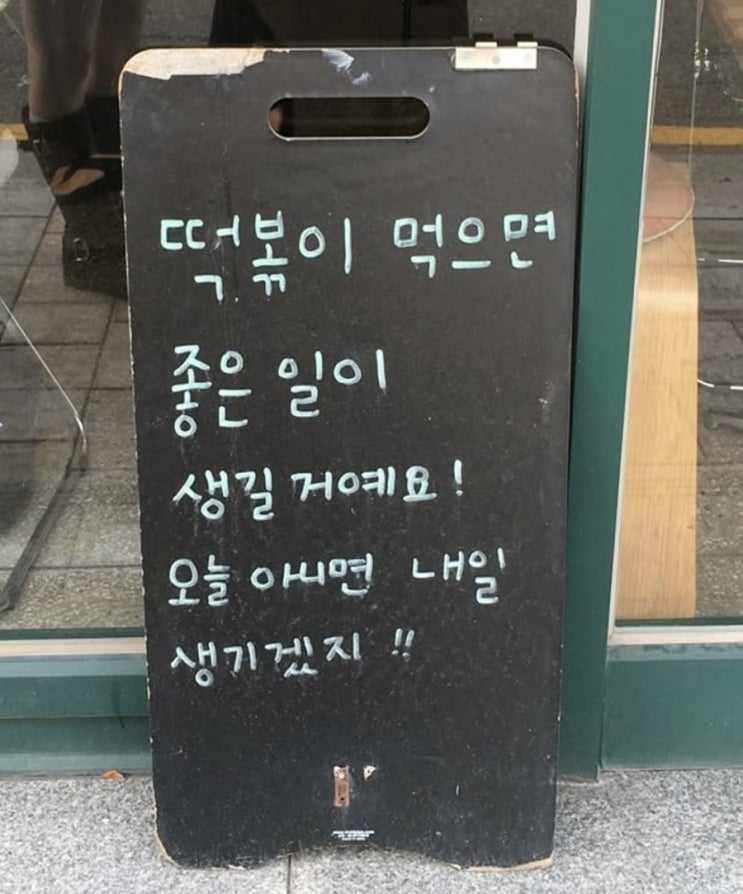 떡볶이 먹으면
좋은 일이
생길 거예요!
오늘 아니면 내일
생기겠지!!